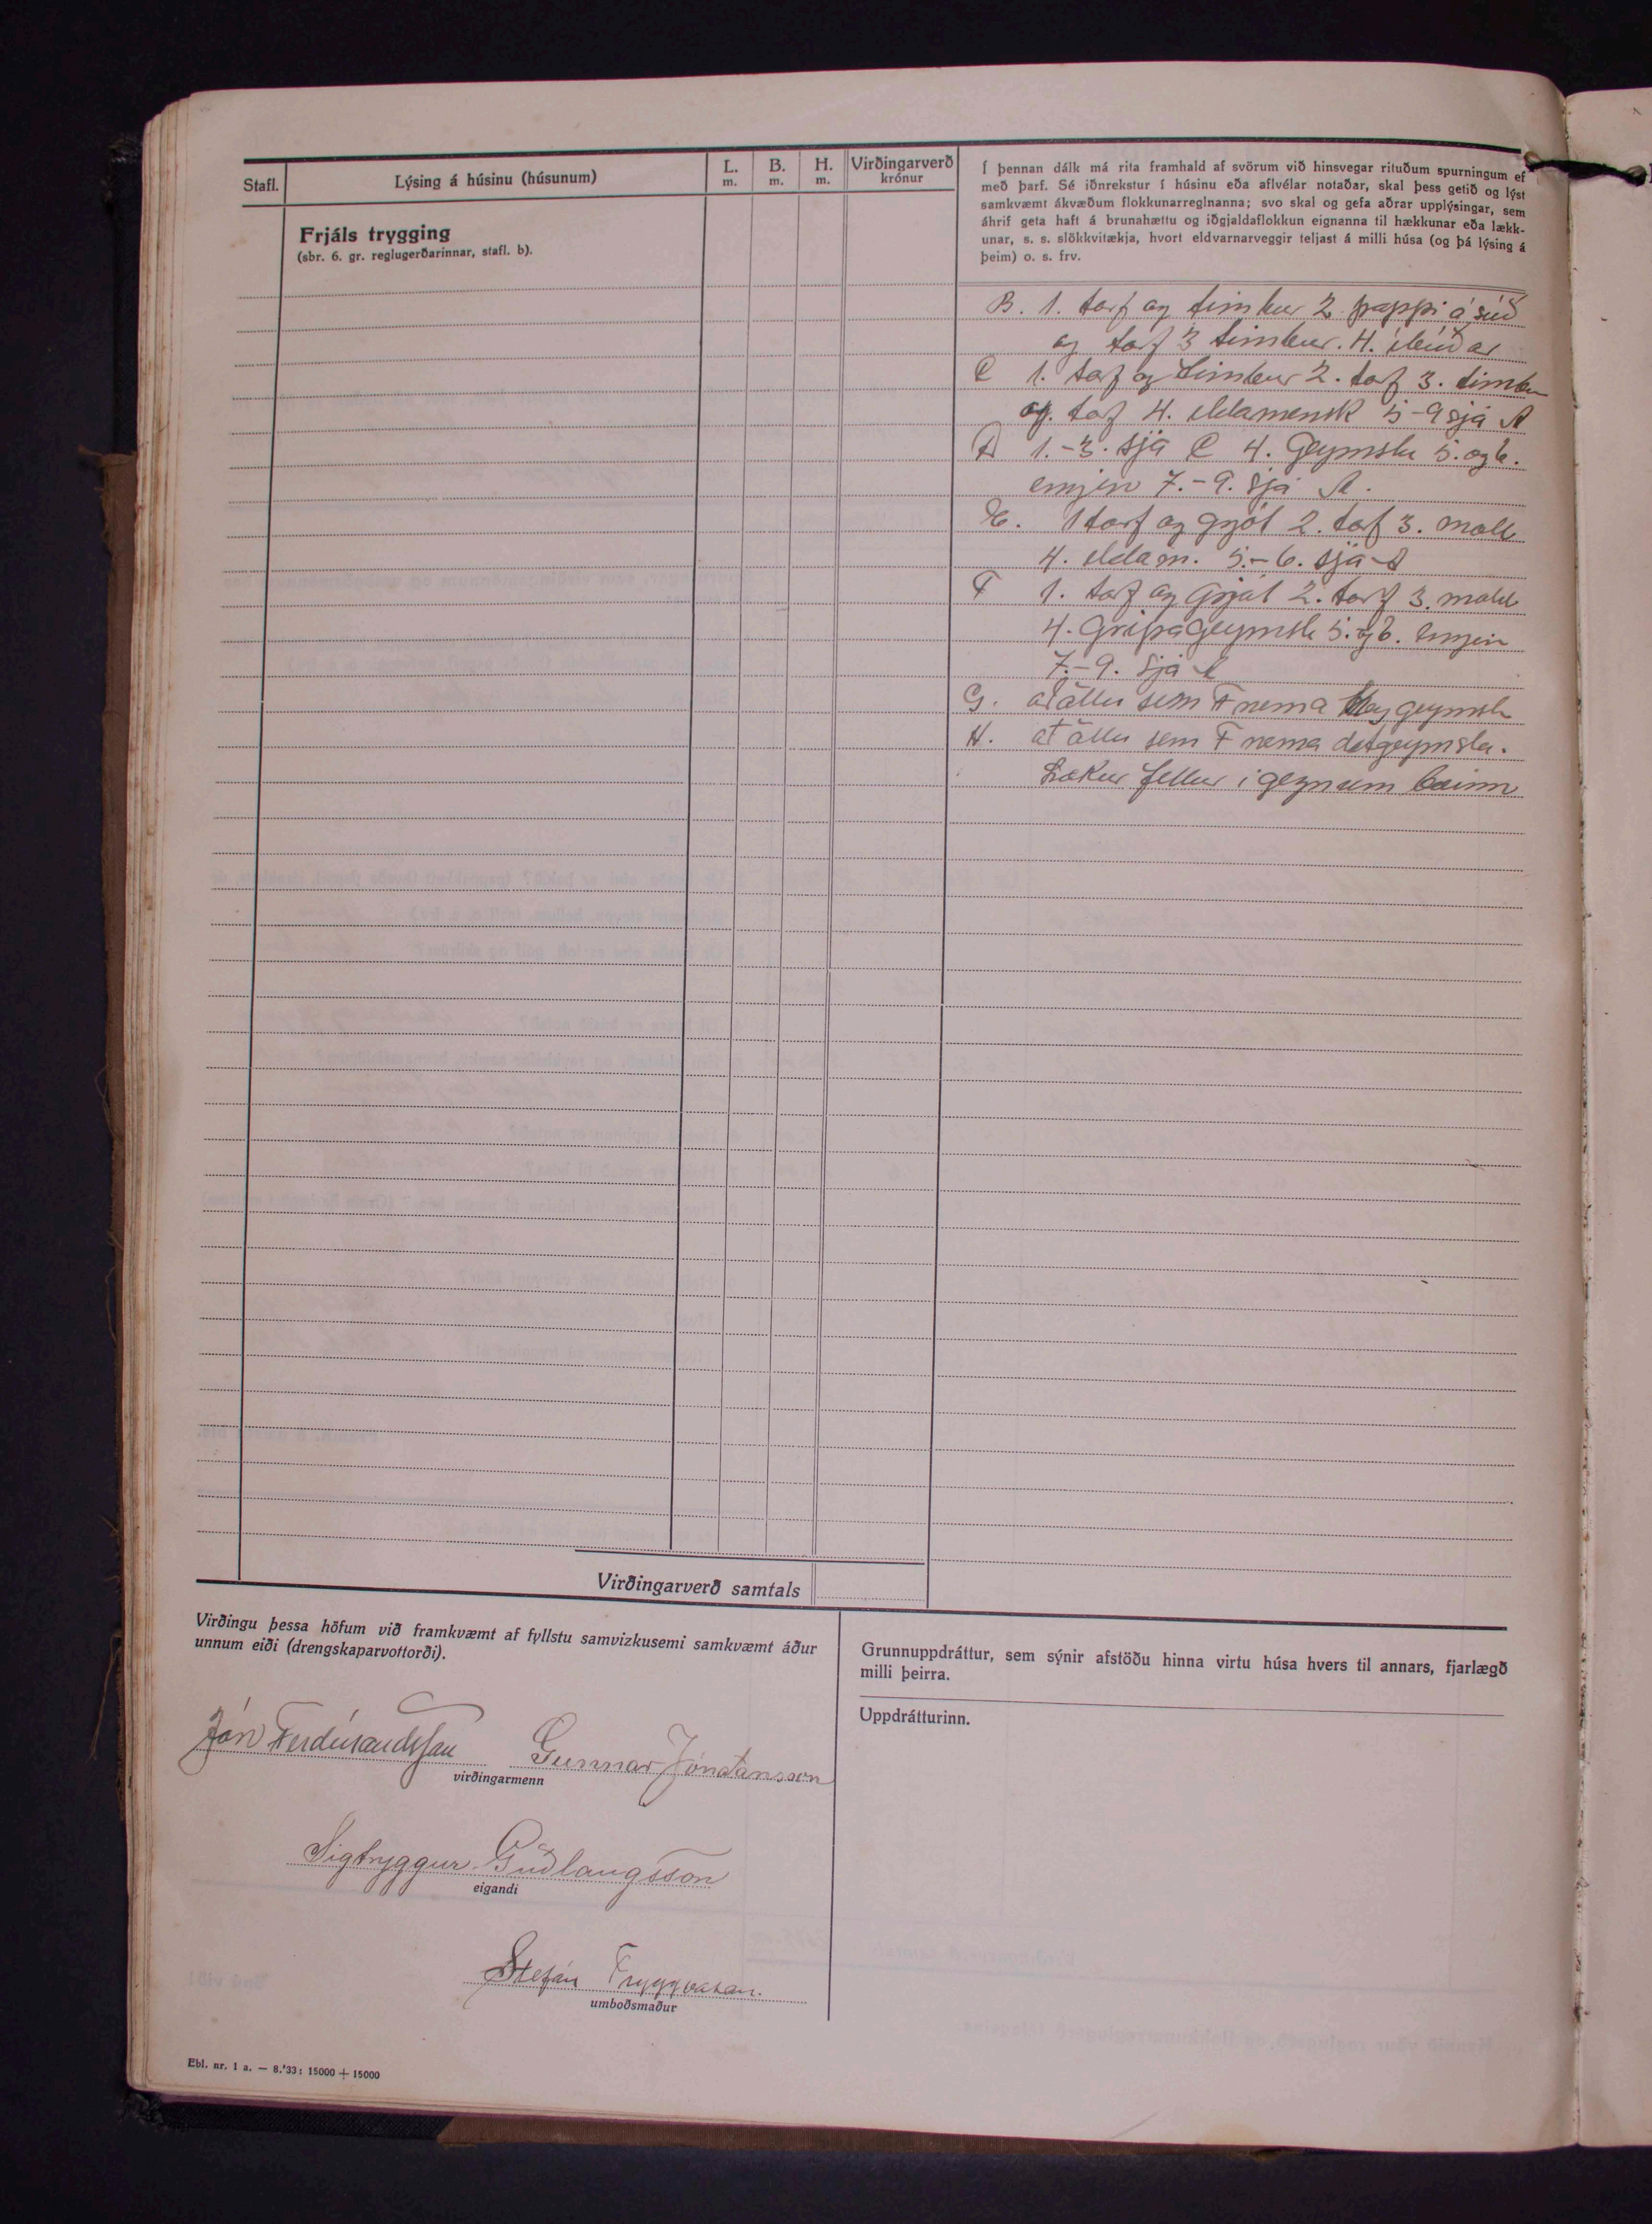 Stafl.
Lýsing á húsinu (húsunum)
L.
m.
B.
m.
H.
m.
Virðingarverð
krónur
Frjáls trygging
(sbr. 6. gr. reglugerðarinnar, stafl. b).
Í þennan dálk má rita framhald af svörum við hinsvegar rituðum spurningum ef
með þarf. Sé iðnrekstur í húsinu eða aflvélar notaðar, skal þess getið og lýst
samkvæmt ákvæðum flokkunarreglnanna; svo skal og gefa aðrar upplýsingar, sem
áhrif geta haft á brunahættu og iðgjaldaflokkun eignanna til hækkunar eða lækk-
unar, s. s. slökkvitækja, hvort eldvarnarveggir teljast á milli húsa (og þá lýsing á
þeim) o. s. frv.
B. 1. torf og timbur 2. pappi á súð
og torf 3 timbur. 4. íbúðar
C 1. torf og timbur 2. torf 3. timbur
og torf 4. eldamensk 5-9 sjá A
D 1.-3. sjá C 4. Geymsla 5. og 6.
engin 7.-9. sjá A.
E. 1 torf og grjót 2. torf 3. mold
4. eldam. 5.-6. sjá A
F 1. torf og grjót 2. torf 3. mold
4. Gripageymsla 5. og 6. Engin
7.-9. sjá A
G. að öllu sem F nema Heygeymsla
H. að öllu sem F nema
Lækur fellur í gegnum bæinn
Virðingarverð samtals
Virðingu þessa höfum við framkvæmt af fyllstu samvizkusemi samkvæmt áður
unnum eiði (drengskaparvottorði).
Jón Ferdinandsson Gunnar Jónatansson
virðingarmenn
Sigtryggur Guðlaugsson
eigandi
Stefán Tryggvason.
umboðsmaður
Grunnuppdráttur, sem sýnir afstöðu hinna virtu húsa hvers til annars, fjarlægð
milli þeirra.
Uppdrátturinn.
Ebl. nr. 1 a. — 8.'33: 15000 + 15000